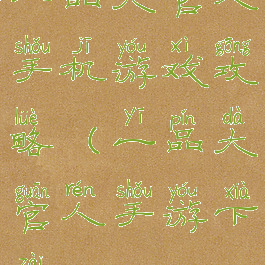 品大官人
shǒu jī yóu xì gōng
手机游戏攻
lüè yī pǐn dà
略(一品大
guān rén shǒu yóu xià
官人手游下
zài